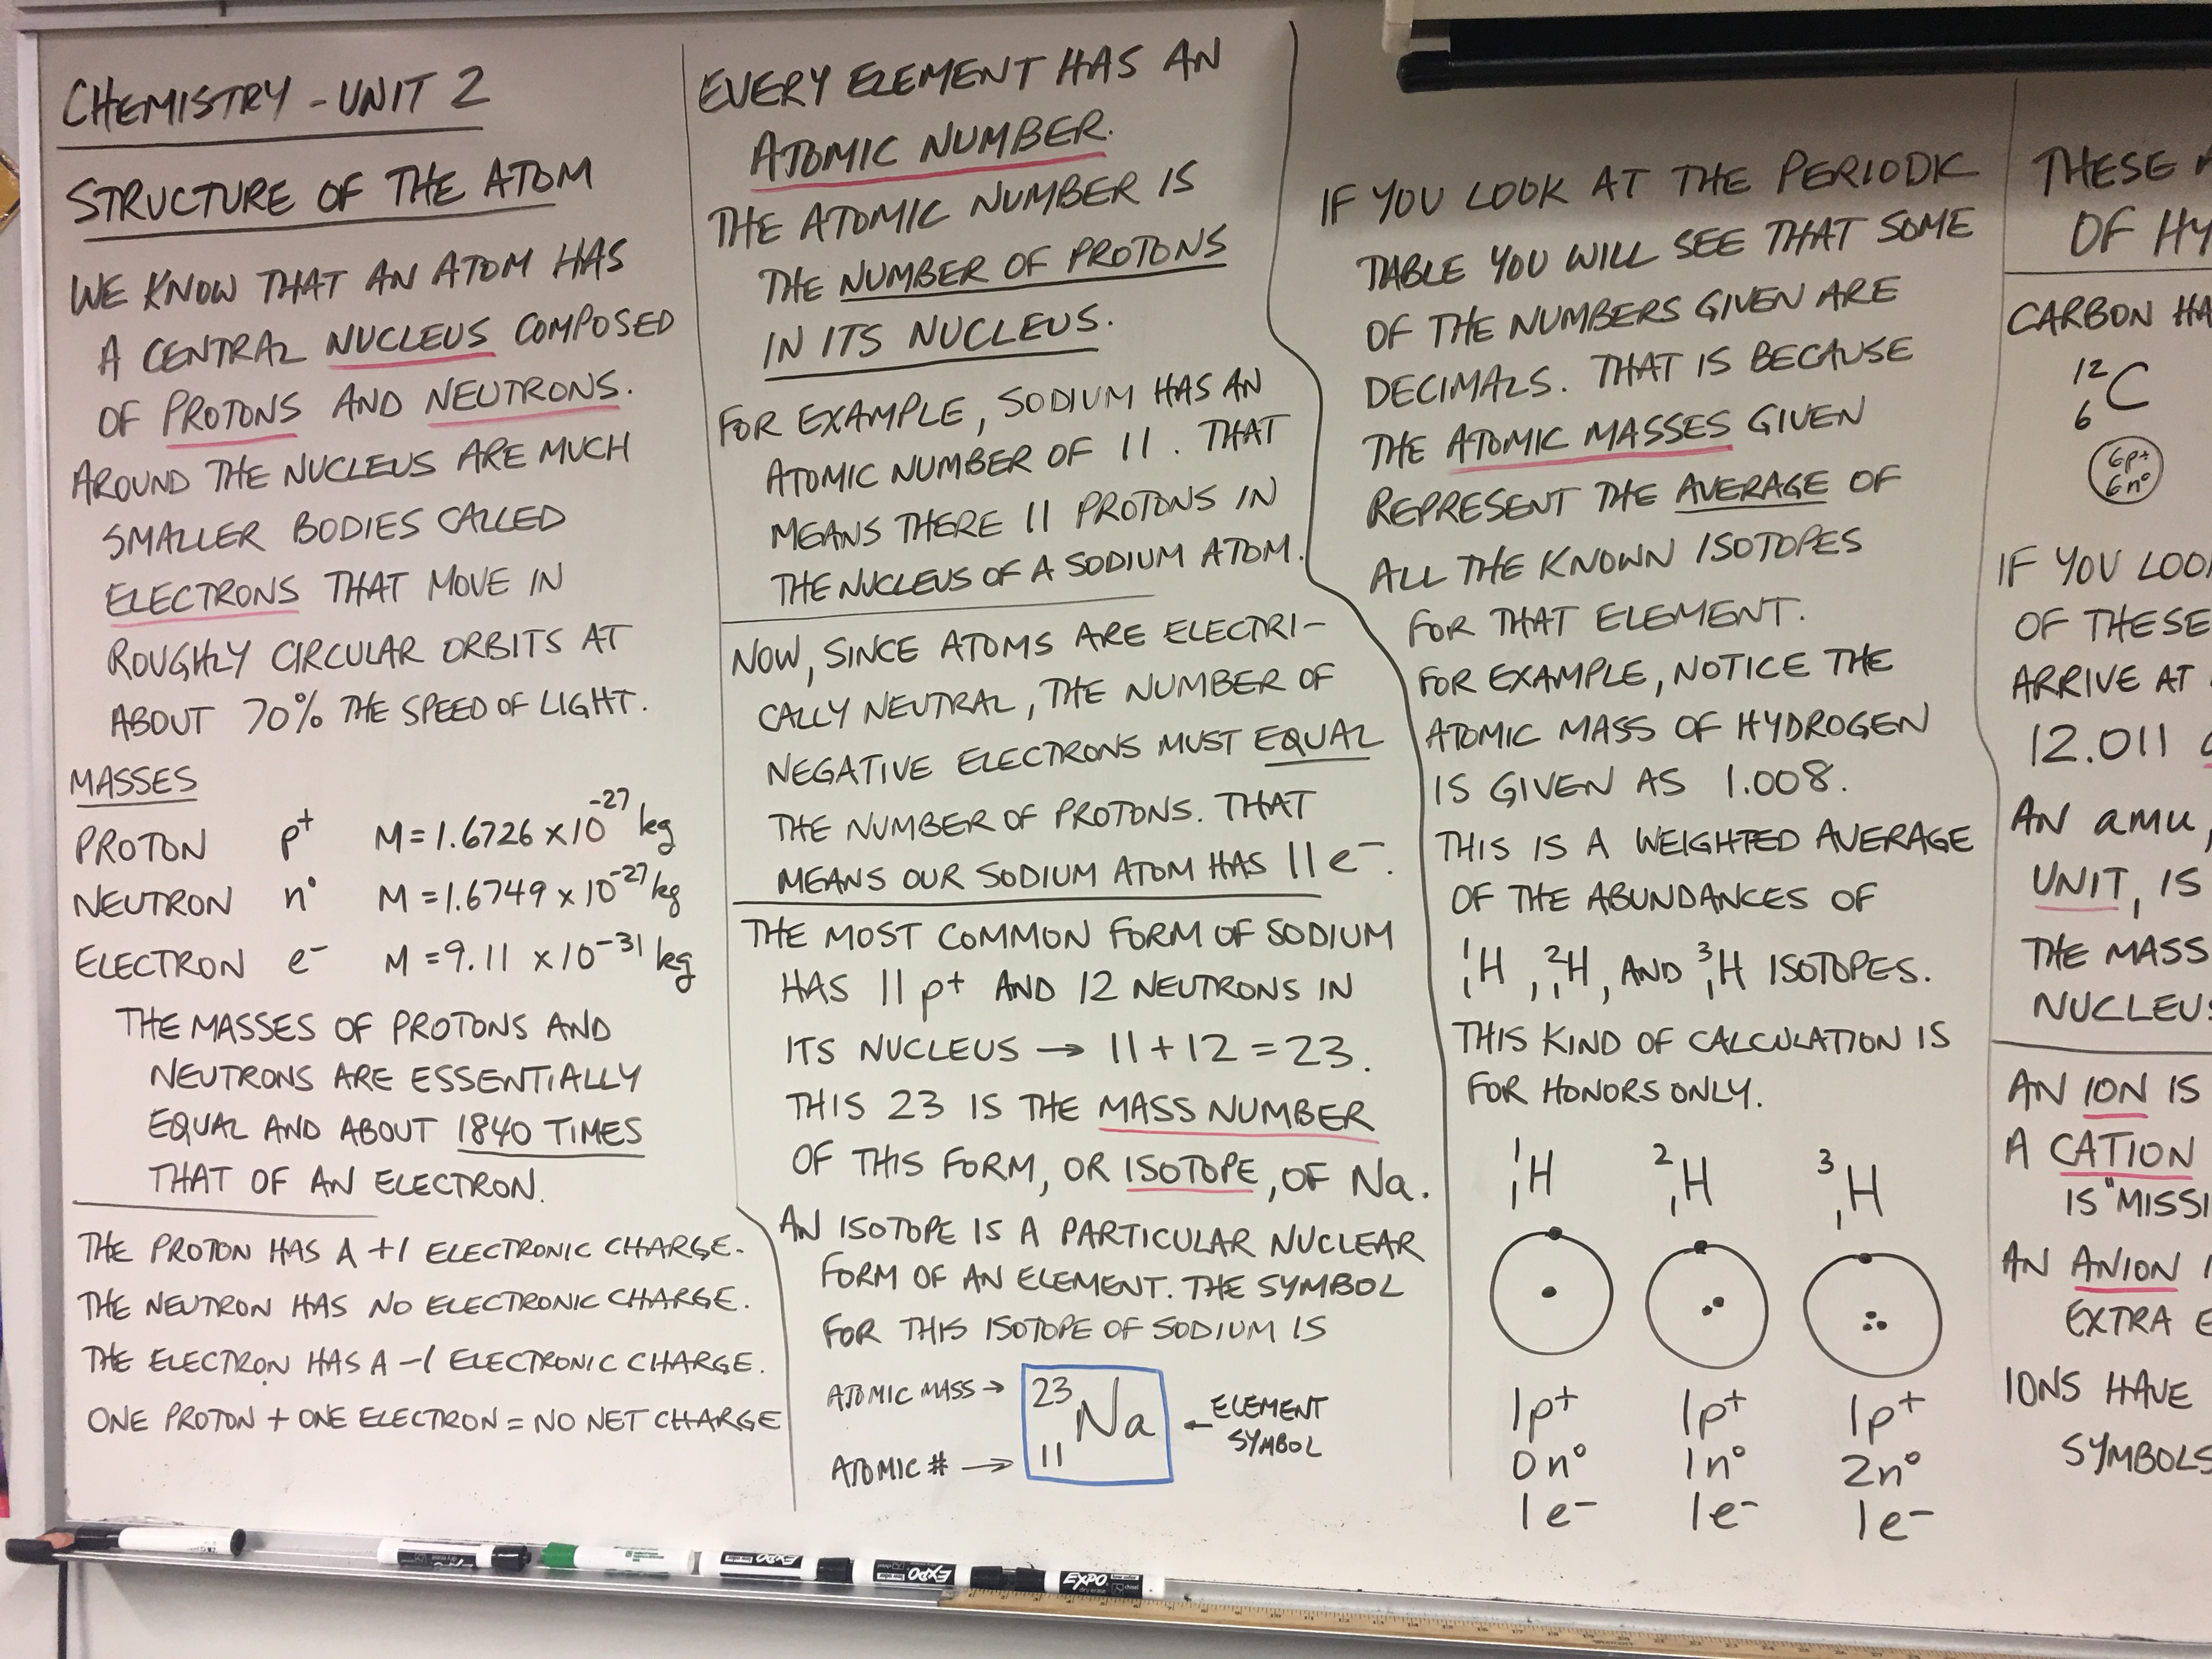 CHEMISTRY - UNIT 2
STRUCTURE OF THE ATOM
WE KNOW THAT AN ATOM HAS
A CENTRAL NUCLEUS COMPOSED
OF PROTONS AND NEUTRONS.
AROUND THE NUCLEUS ARE MUCH
SMALLER BODIES CALLED
ELECTRONS THAT MOVE IN
ROUGHLY CIRCULAR ORBITS AT
ABOUT 70% THE SPEED OF LIGHT.
MASSES
PROTON p⁺ M = 1.6726 x 10⁻²⁷ kg
NEUTRON n° M = 1.6749 x 10⁻²⁷ kg
ELECTRON e⁻ M = 9.11 x 10⁻³¹ kg
THE MASSES OF PROTONS AND
NEUTRONS ARE ESSENTIALLY
EQUAL AND ABOUT 1840 TIMES
THAT OF AN ELECTRON.
THE PROTON HAS A +1 ELECTRONIC CHARGE.
THE NEUTRON HAS NO ELECTRONIC CHARGE.
THE ELECTRON HAS A -1 ELECTRONIC CHARGE.
ONE PROTON + ONE ELECTRON = NO NET CHARGE
EVERY ELEMENT HAS AN
ATOMIC NUMBER.
THE ATOMIC NUMBER IS
THE NUMBER OF PROTONS
IN ITS NUCLEUS.
FOR EXAMPLE, SODIUM HAS AN
ATOMIC NUMBER OF 11. THAT
MEANS THERE 11 PROTONS IN
THE NUCLEUS OF A SODIUM ATOM.
NOW, SINCE ATOMS ARE ELECTRI-
CALLY NEUTRAL, THE NUMBER OF
NEGATIVE ELECTRONS MUST EQUAL
THE NUMBER OF PROTONS. THAT
MEANS OUR SODIUM ATOM HAS 11 e⁻.
THE MOST COMMON FORM OF SODIUM
HAS 11 p⁺ AND 12 NEUTRONS IN
ITS NUCLEUS → 11 + 12 = 23.
THIS 23 IS THE MASS NUMBER
OF THIS FORM, OR ISOTOPE, OF Na.
AN ISOTOPE IS A PARTICULAR NUCLEAR
FORM OF AN ELEMENT. THE SYMBOL
FOR THIS ISOTOPE OF SODIUM IS
ATOMIC MASS → 23
Na ← ELEMENT
SYMBOL
ATOMIC # → 11
IF YOU LOOK AT THE PERIODIC
TABLE YOU WILL SEE THAT SOME
OF THE NUMBERS GIVEN ARE
DECIMALS. THAT IS BECAUSE
THE ATOMIC MASSES GIVEN
REPRESENT THE AVERAGE OF
ALL THE KNOWN ISOTOPES
FOR THAT ELEMENT.
FOR EXAMPLE, NOTICE THE
ATOMIC MASS OF HYDROGEN
IS GIVEN AS 1.008.
THIS IS A WEIGHTED AVERAGE
OF THE ABUNDANCES OF
¹₁H, ²₁H, AND ³₁H ISOTOPES.
THIS KIND OF CALCULATION IS
FOR HONORS ONLY.
¹₁H ²₁H ³₁H
1p⁺ 1p⁺ 1p⁺
0n° 1n° 2n°
1e⁻ 1e⁻ 1e⁻
THESE
OF HY
CARBON HA
¹²₆C
6p⁺
6n°
IF YOU LOO
OF THESE
ARRIVE AT
12.011
AN amu,
UNIT, IS
THE MASS
NUCLEUS
AN ION IS
A CATION
IS "MISSI
AN ANION
EXTRA E
IONS HAVE
SYMBOLS
EXPO
EXPO
EXPO